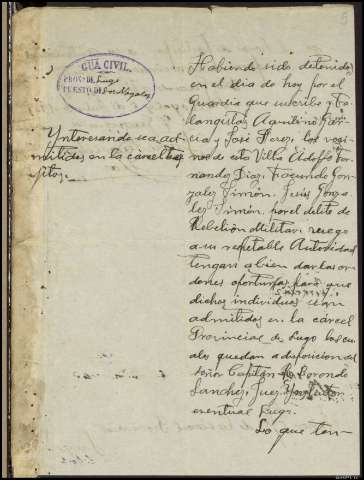 GUA CIVIL.
PROV. DE Lugo
PUESTO DE Los Nogales
Ynteresando sea ad-
mitidos en la cárcel
Habiendo sido detenidos
en el dia de hoy por el
Guardia que suscribe y Fa
langistas Aquilino Gar
cia y José Perez, los veci
nos de esta Villa Adolfo Fer
nandez Diaz, Facundo Gon
zalez Simón, Luis Gonza
lez Simón, por el delito de
Rebelión Militar, ruego
a su respetable Autoridad
tengan a bien dar las or
denes oportunas para que
dichos individuos sean
admitidos en la cárcel
Provincial de Lugo los cu
ales quedan a disposicion del
Señor Capitán
Sanchez, Juez Ynstructor
eventual Lugo.
Lo que ten-